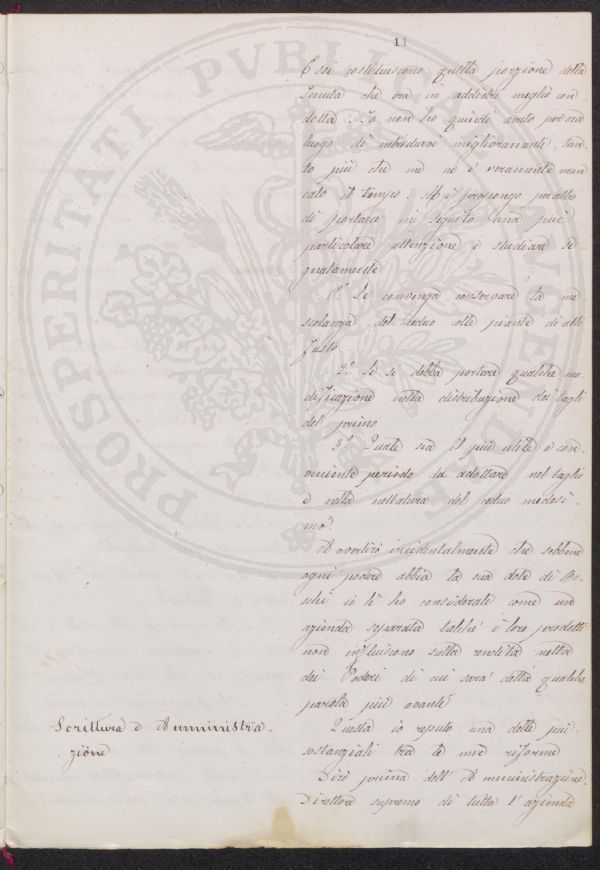 11
Essi costituiscono quella porzione della
Tenuta che era in addietro meglio con
dotta. Io non ho quindi avuto per ora
luogo di introdurvi miglioramenti, tan-
to più che me ne è veramente man
cato il tempo. Mi propongo peraltro
di portarci in seguito una più
particolare attenzione e studiare se
gnatamente
1º Se convenga conservare la me
scolanza del ceduo colle piante di alto
fusto
2º Se si debba portare qualche mo
dificazione nella distribuzione dei tagli
del primo
3º Quale sia il più utile e con-
veniente periodo da adottare nel taglio
e nella nettatura del ceduo medesi-
mo.
Avvertirò incidentalmente che sebbene
ogni podere abbia la sua dote di Bo-
schi io li ho considerati come una
azienda separata talché i loro prodotti
non influiscono sulla rendita netta
dei Poderi di cui sarà detta qualche
parola più avanti
Scrittura e Amministra-
zione
Questa io reputo una delle più
sostanziali tra le mie riforme
Dirò prima dell'Amministrazione.
Direttore supremo di tutta l'azienda
PROSPERITATI PVBLICAE AVGENDAE